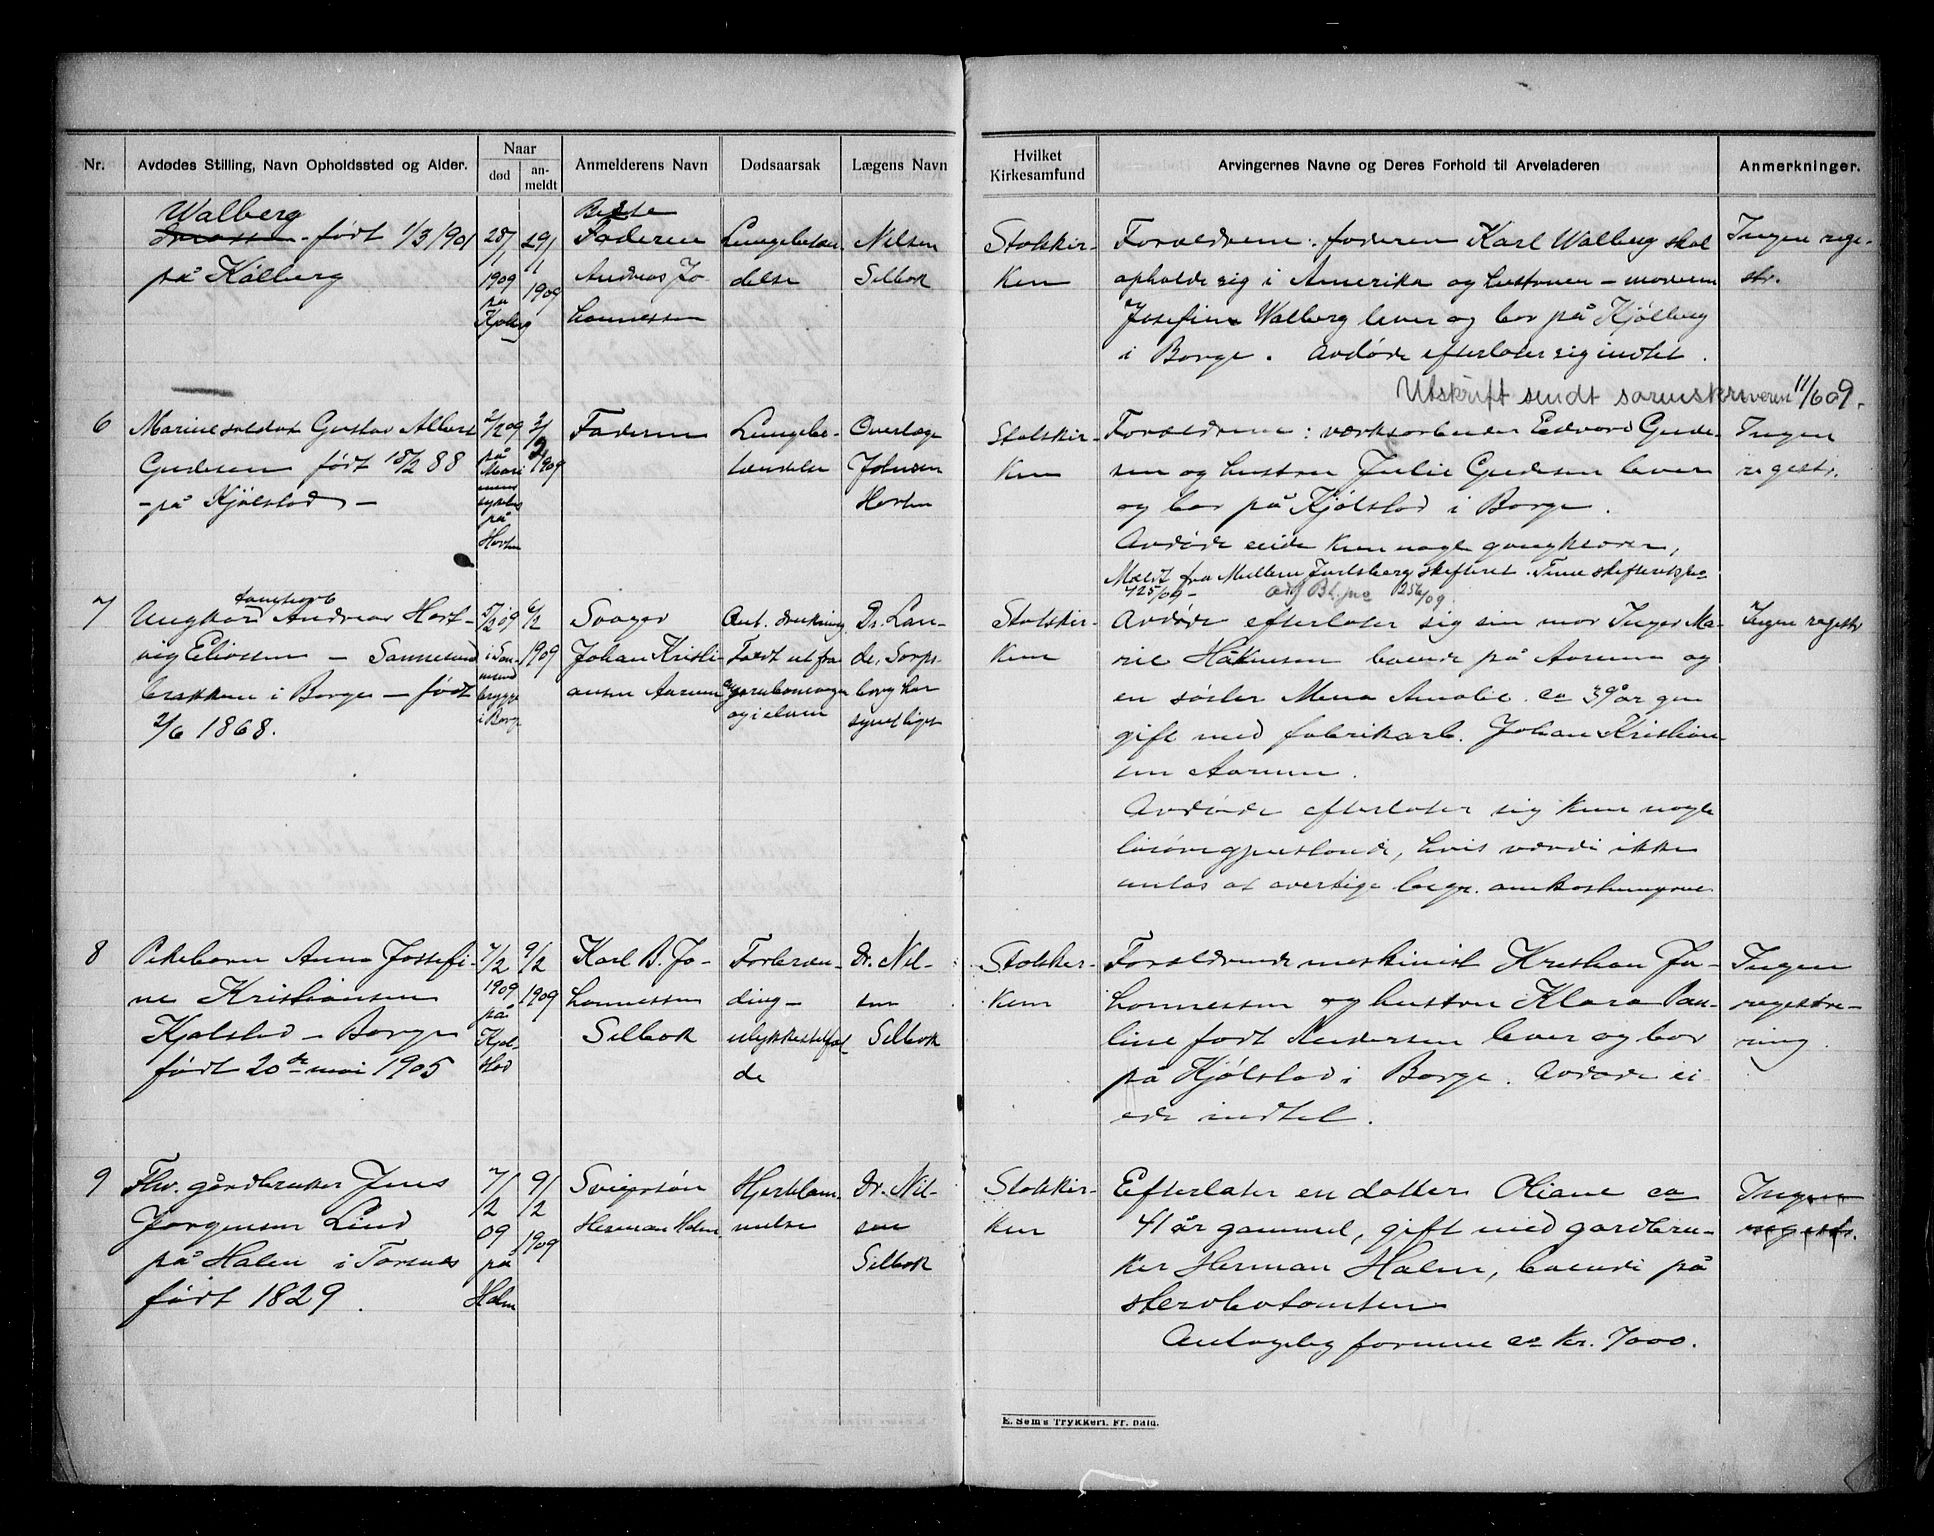 Nr.
Avdødes Stilling, Navn Opholdssted og Alder.
Naar
død
an-
meldt
Anmelderens Navn
Dødsaarsak
Lægens Navn
Hvilket
Kirkesamfund
Arvingernes Navne og Deres Forhold til Arveladeren
Anmerkninger.
Walberg
født 1/3 1901
på Kålberg
28/1
1909
på
Kjølberg
29/1
1909
Beste
Faderen
Andreas Jo-
hannessen
Lungebetæn-
delse
Nilsen
Selbak
Statskir-
ken
Forældrene: faderen Karl Walberg skal
opholde sig i Amerika og hustruen – moderen
Josefine Walberg lever og bor på Kjølberg
i Borge. Avdøde efterlater sig indtet.
Ingen rege-
str.
Utskrift sendt sorenskriveren 11/6 09.
6
Marinesoldat Gustav Albert
Gudesen født 18/2 88
– på Kjølstad –
2/2 09
på
Mari
nens
sykehus
på
Horten
3/2
1909
Faderen
Lungebe-
tændelse
Overlæge
Johnsen
Horten
Statskir-
ken
Forældrene: værksarbeider Edvard Gude-
sen og hustru Julie Gudesen lever
og bor på Kjølstad i Borge.
Avdøde eiede kun nogle gangklær,
Meldt fra Mellem Jarlsberg skifteret.
425/09 –
1256/09.
Ingen
registr.
7
Ungkar Andreas Hart-
vig Eliassen – Sannesund
brakken i Borge – født
2/6 1868.
5/2 09
i San-
nesund
brygge
i Borge
6/2
1909
Svoger
Johan Kristi-
ansen Aarum
Ant. drukning
Faldt ut fra
og i elven
Dr. Lan-
de, Sarps-
borg har
synet liget
Statskir-
ken
Avdøde efterlater sig sin mor Inger Ma-
rie Håkensen boende på Aarum og
en søster Mena Amalie ca 39 år gm
gift med fabrikarb. Johan Kristian-
sen Aarum.
Avdøde efterlater sig kun nogle
løsøregjenstande, hvis værdi ikke
antas at overstige begr. omkostningerne
Ingen registr
8
Pikebarn Anna Josefi-
ne Kristiansen
Kjølstad – Borge
født 20de mai 1905
7/2
1909
på
Kjøl-
stad
9/2
1909
Karl B. Jo-
hannessen
Selbak
Forbræn-
ding –
ulykkestilfæl-
de
Dr. Nil-
sen
Selbak
Statskir-
ken
Forældrende maskinist Kristian Jo-
hannessen og hustru Klara Pau-
line født Andersen lever og bor
på Kjølstad i Borge. Avdøde ei-
ede indtet.
Ingen
registre-
ring.
9
Fhv. gårdbruker Jens
Jørgensen Lund
på Halen i Torsnes
født 1829.
7/2
09
på
Halen
9/2
1909
Svigersøn
Herman Halen
Hjertelam-
melse
Dr. Nil-
sen
Selbak
Statskir-
ken
Efterlater en datter Oliane ca
41 år gammel, gift med gardbru-
ker Herman Halen, boende på
stervbotomten
Antagelig formue ca kr. 7000.
Ingen
registr.
E. Sem's Trykkeri, Fr. hald.